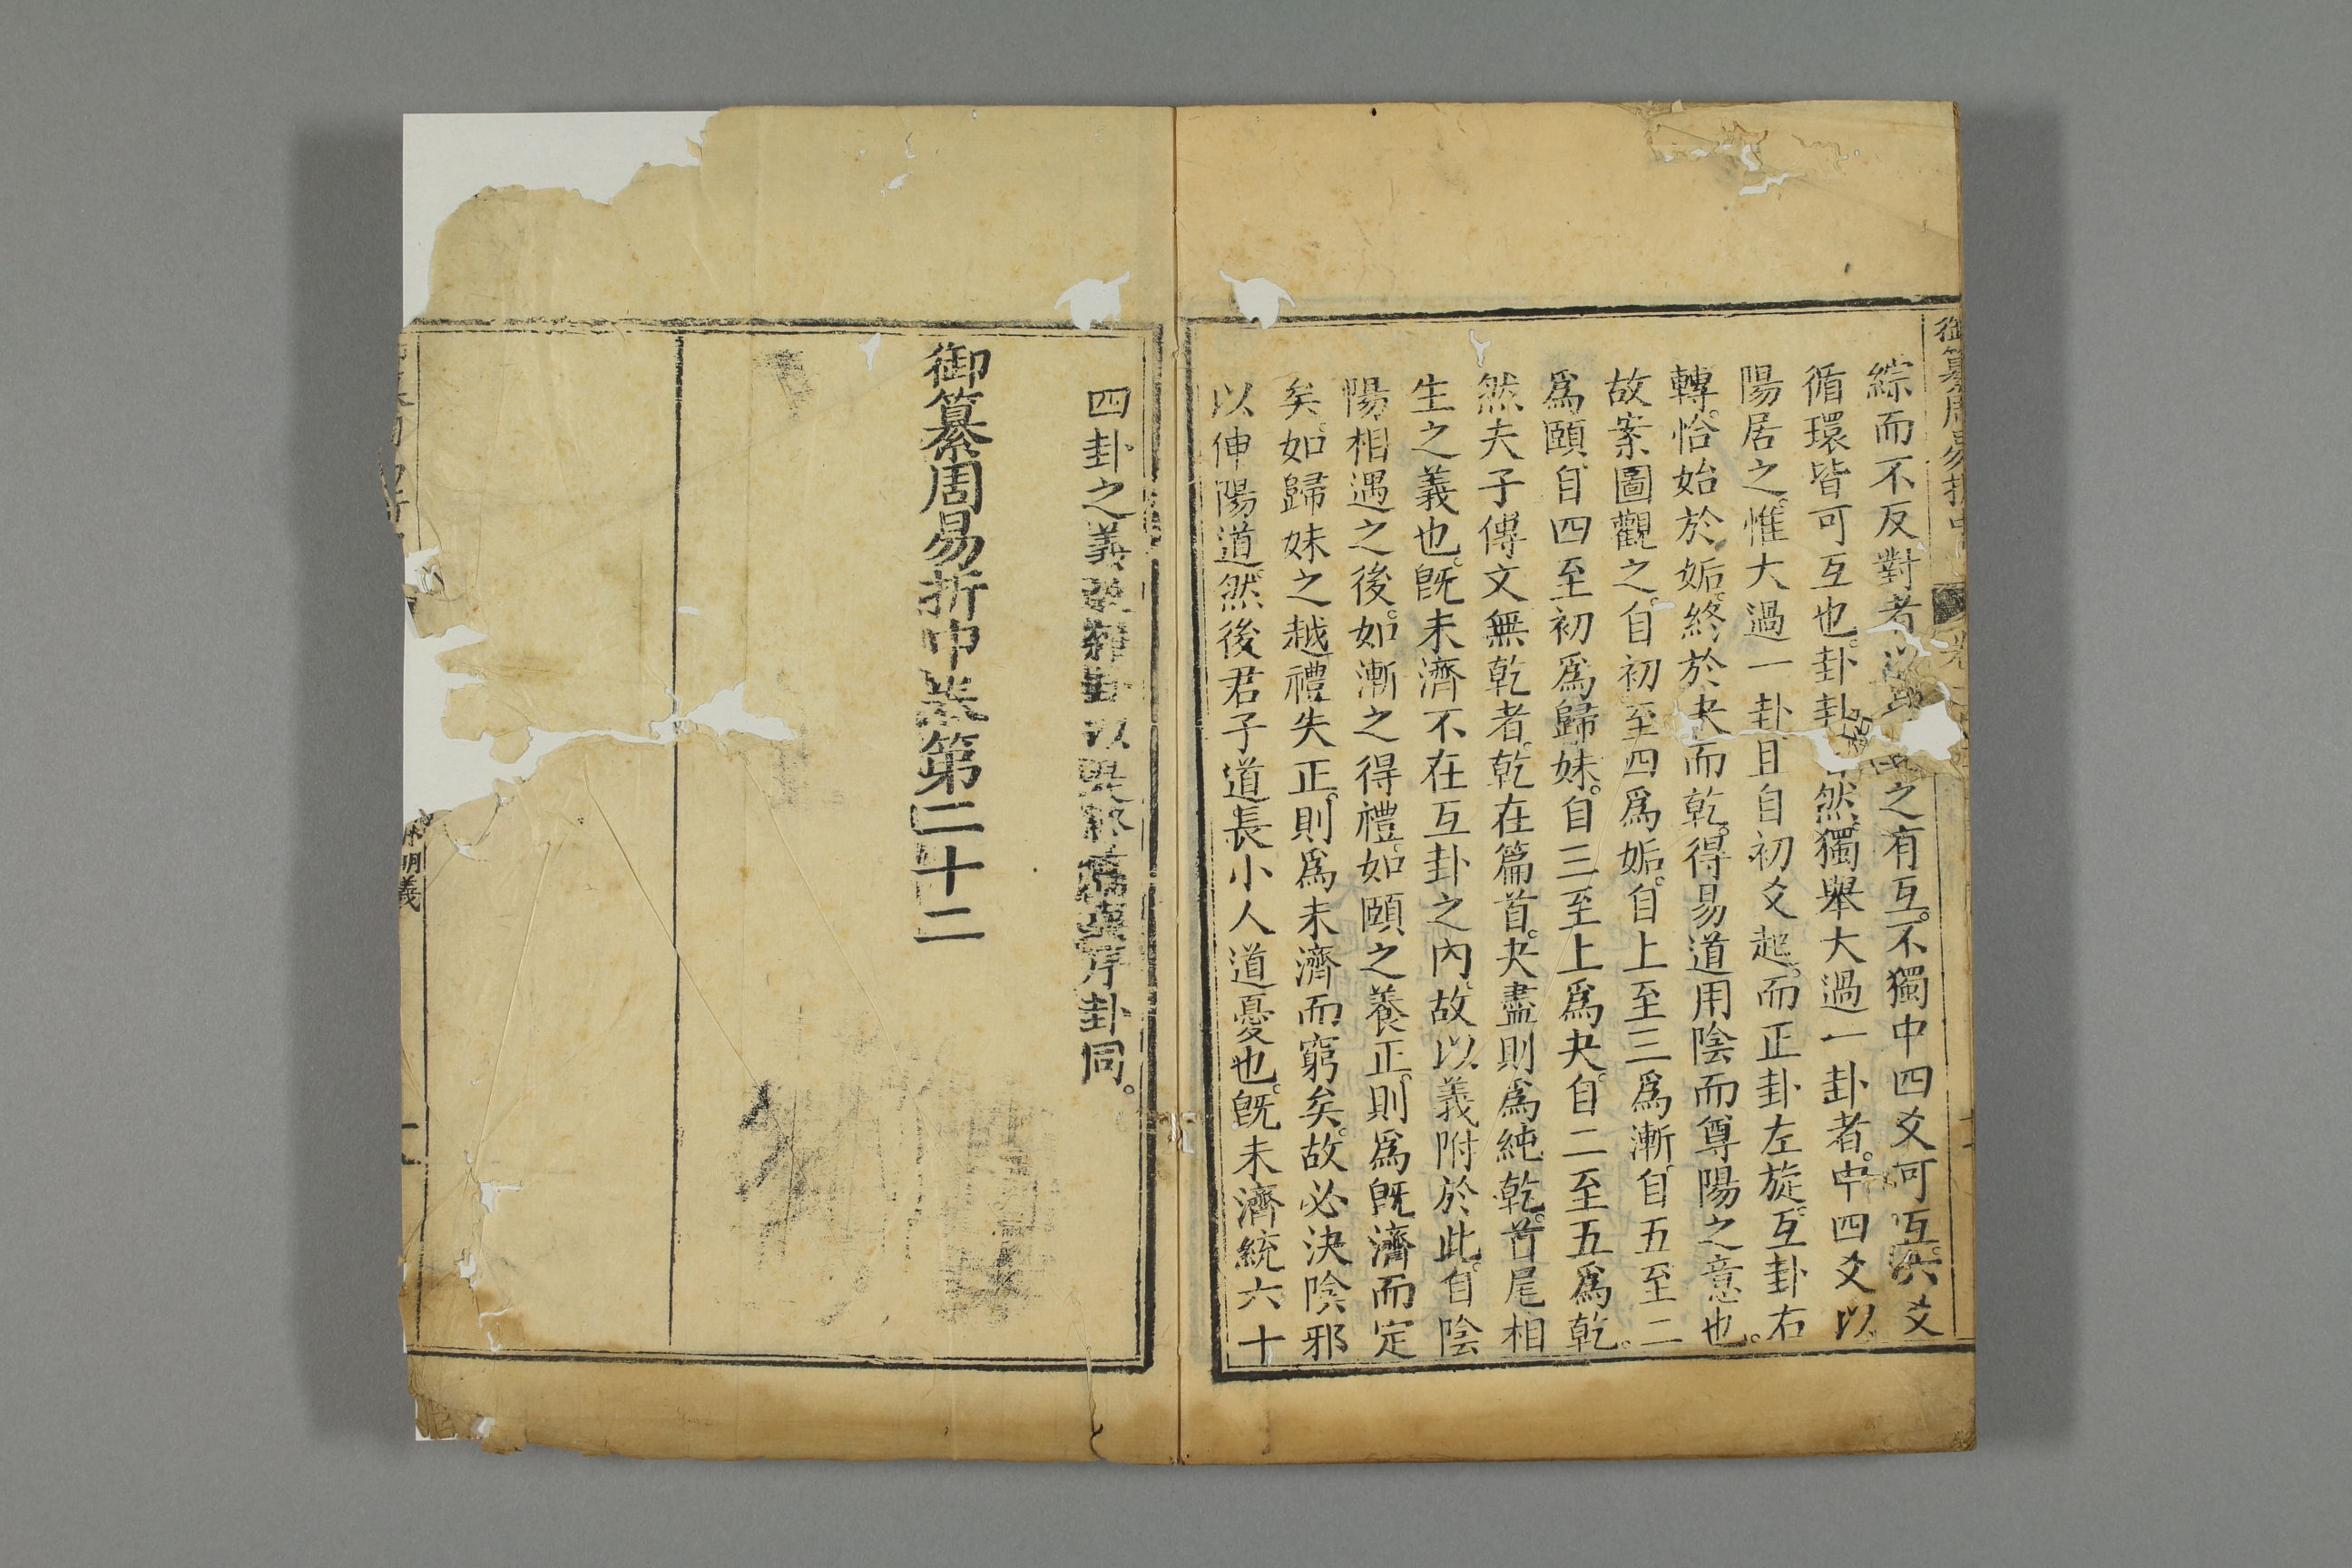 御纂周易折中
綜而不反對者之有互。不獨中四爻可互。洪爻
循環皆可互也。卦卦然。獨舉大過一卦者。中四爻以
陽居之。惟大過一卦且自初爻起。而正卦左旋。互卦右
轉。恰始於姤。終於夬而乾。得易道用陰而尊陽之意也。
故案圖觀之。自初至四爲姤。自上至三爲漸。自五至二
爲頤。自四至初爲歸妹。自三至上爲夬。自二至五爲乾。
然夫子傳文無乾者。乾在篇首。夬盡則爲純乾。首尾相
生之義也。旣未濟不在互卦之內。故以義附於此。自陰
陽相遇之後。如漸之得禮。如頤之養正。則爲旣濟而定
矣。如歸妹之越禮失正。則爲未濟而窮矣。故必決陰邪
以伸陽道。然後君子道長小人道憂也。旣未濟統六十
四卦之義雜卦以終篇序卦同。
御纂周易折中卷第二十二
明義